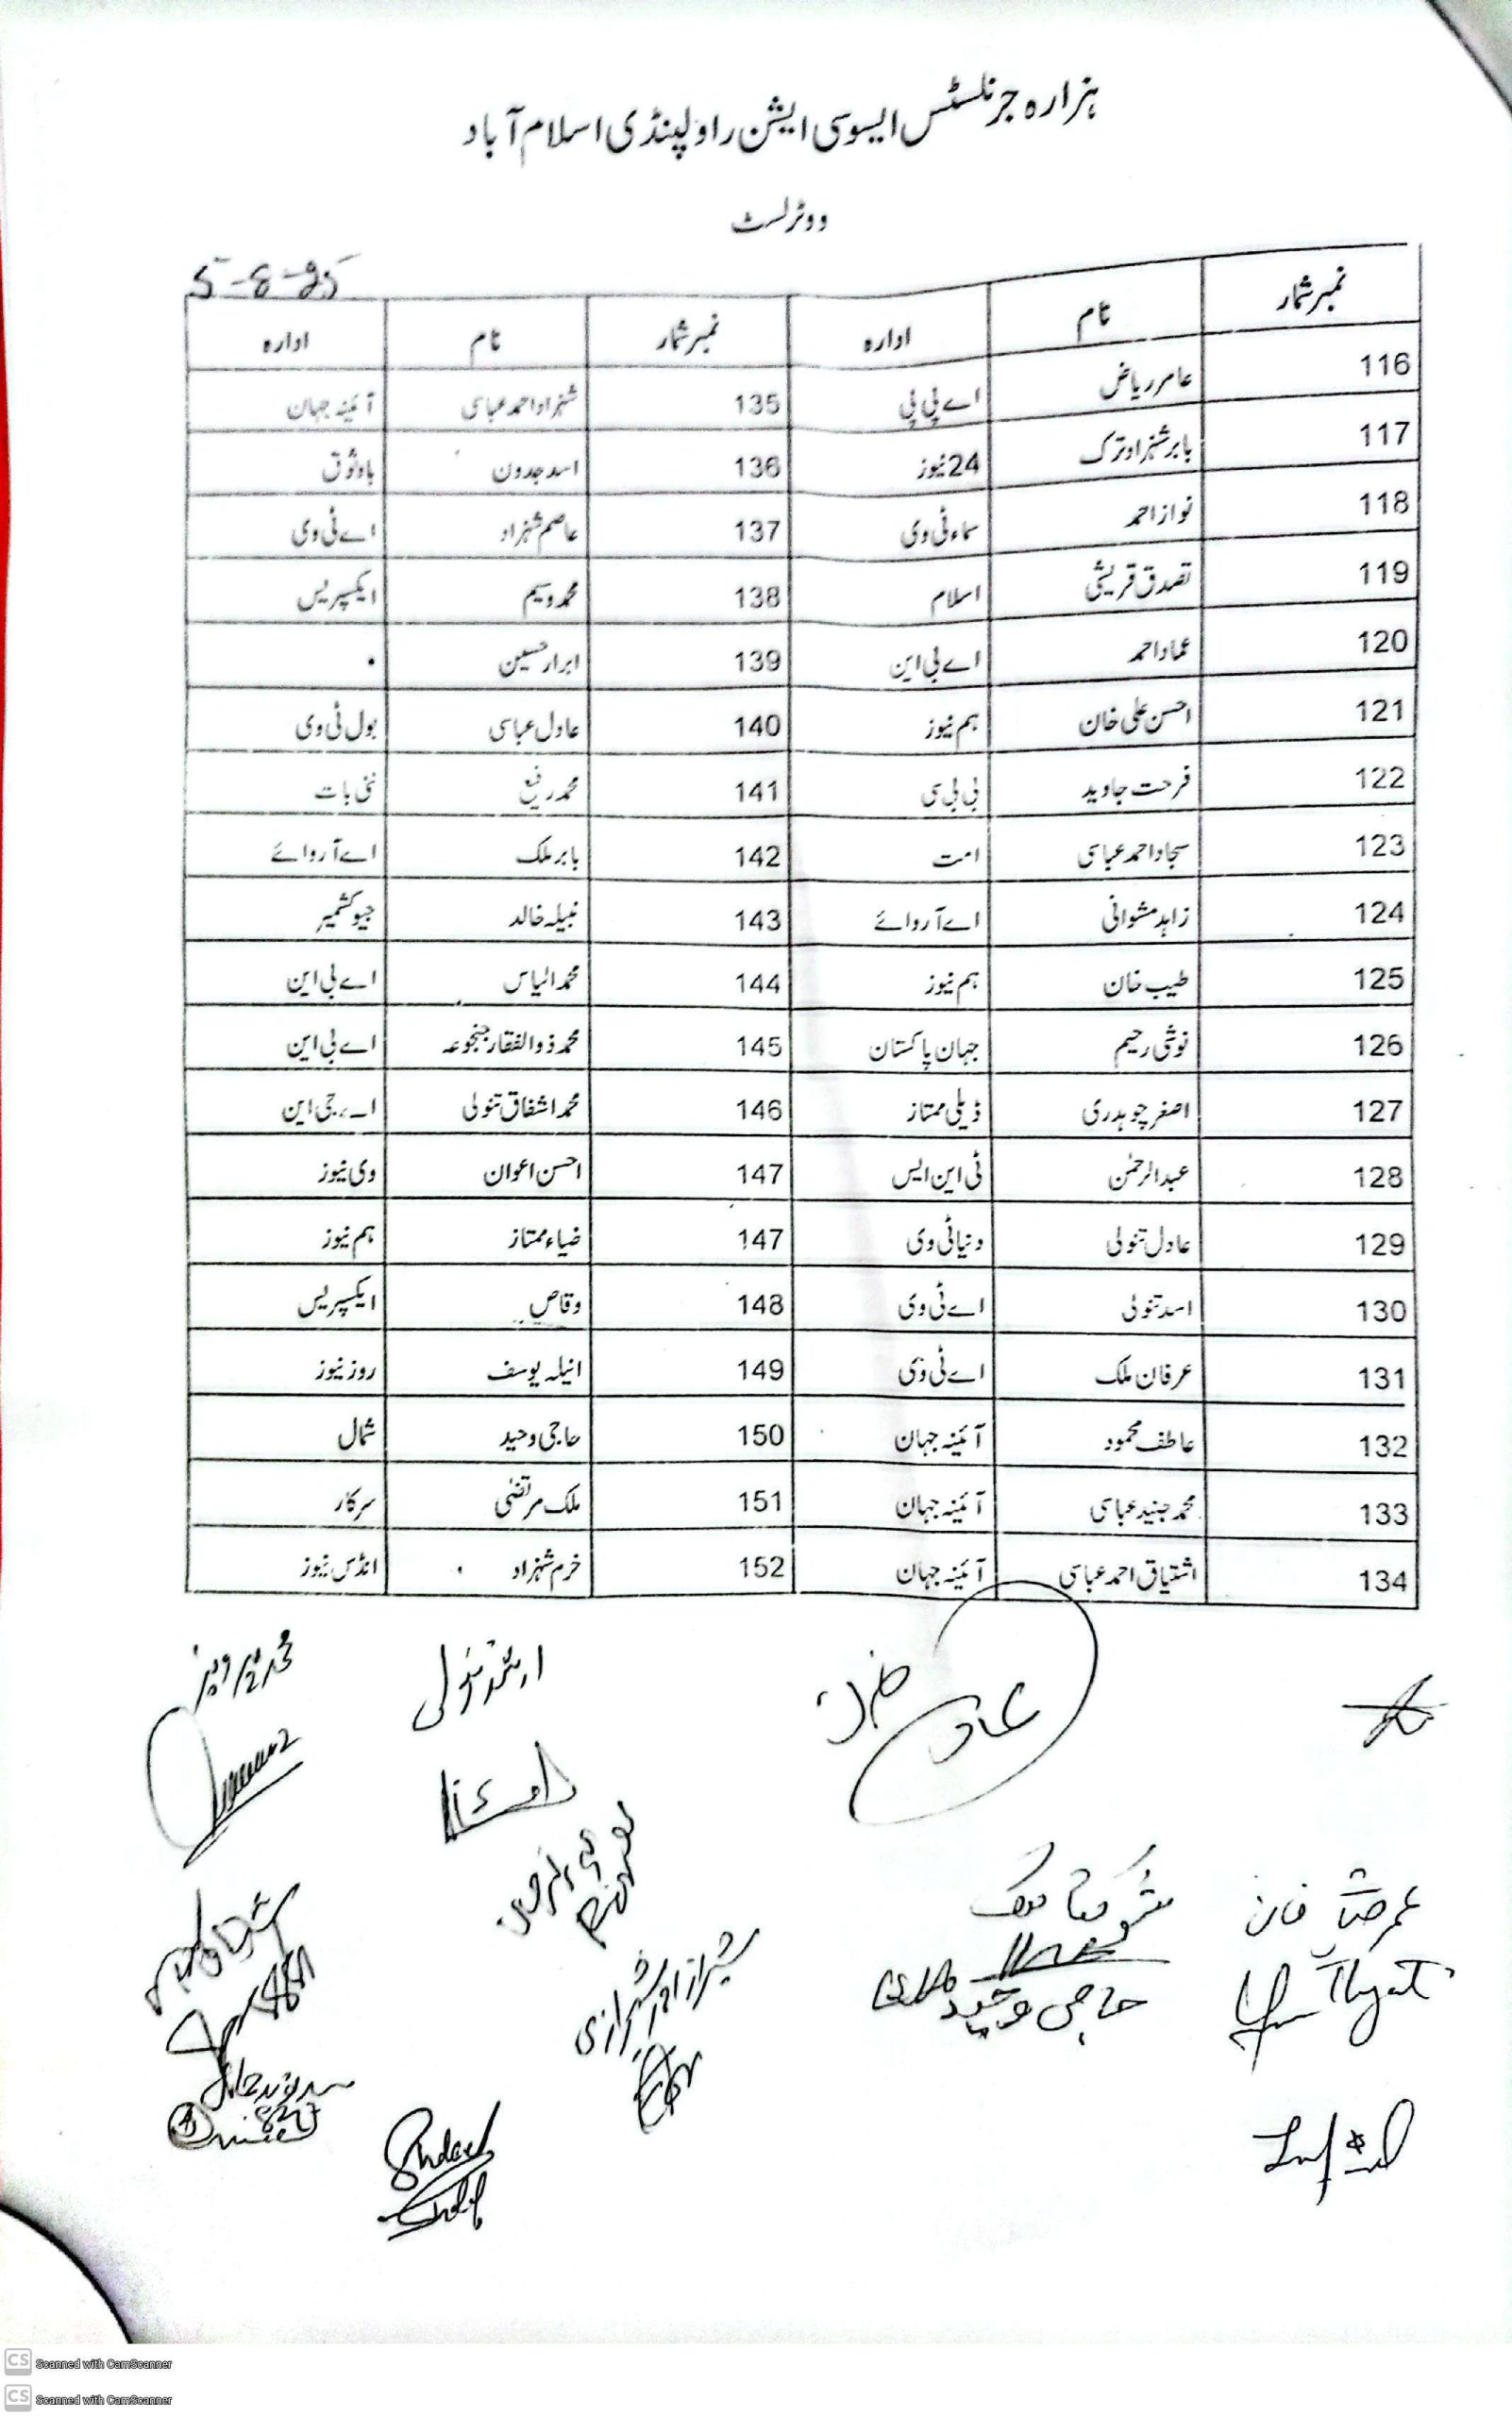 ہزارہ جرنلسٹس ایسوسی ایشن راولپنڈی اسلام آباد
ووٹر لسٹ
5-8-25
نمبر شمار نام ادارہ نمبر شمار نام ادارہ
116 عامر ریاض اے پی پی 135 شہزاد احمد عباسی آئینہ جہان
117 بابر شہزاد ترک 24 نیوز 136 اسد جدون باوثوق
118 نواز احمد سماء ٹی وی 137 عاصم شہزاد اے ٹی وی
119 تصدق قریشی اسلام 138 محمد وسیم ایکسپریس
120 عماد احمد اے بی این 139 ابرار حسین
121 احسن علی خان ہم نیوز 140 عادل عباسی بول ٹی وی
122 فرحت جاوید بی بی سی 141 محمد رفیع نئی بات
123 سجاد احمد عباسی امت 142 بابر ملک اے آر وائے
124 زاہد مشوانی اے آر وائے 143 نبیلہ خالد جیو کشمیر
125 طیب خان ہم نیوز 144 محمد الیاس اے بی این
126 نوشی رحیم جہان پاکستان 145 محمد ذوالفقار جنجوعہ اے بی این
127 اصغر چوہدری ڈیلی ممتاز 146 محمد اشفاق تنولی اے جی این
128 عبدالرحمٰن ٹی این ایس 147 احسن اعوان وی نیوز
129 عادل تنولی دنیا ٹی وی 147 ضیاء ممتاز ہم نیوز
130 اسد تنولی اے ٹی وی 148 وقاص ایکسپریس
131 عرفان ملک اے ٹی وی 149 انیلہ یوسف روز نیوز
132 عاطف محمود آئینہ جہان 150 حاجی وحید شمال
133 محمد جنید عباسی آئینہ جہان 151 ملک مرتضیٰ سرکار
134 اشتیاق احمد عباسی آئینہ جہان 152 خرم شہزاد انڈس نیوز
تنولی
خان
حاجی وحید
شیراز احمد شیرازی
CS Scanned with CamScanner
CS Scanned with CamScanner